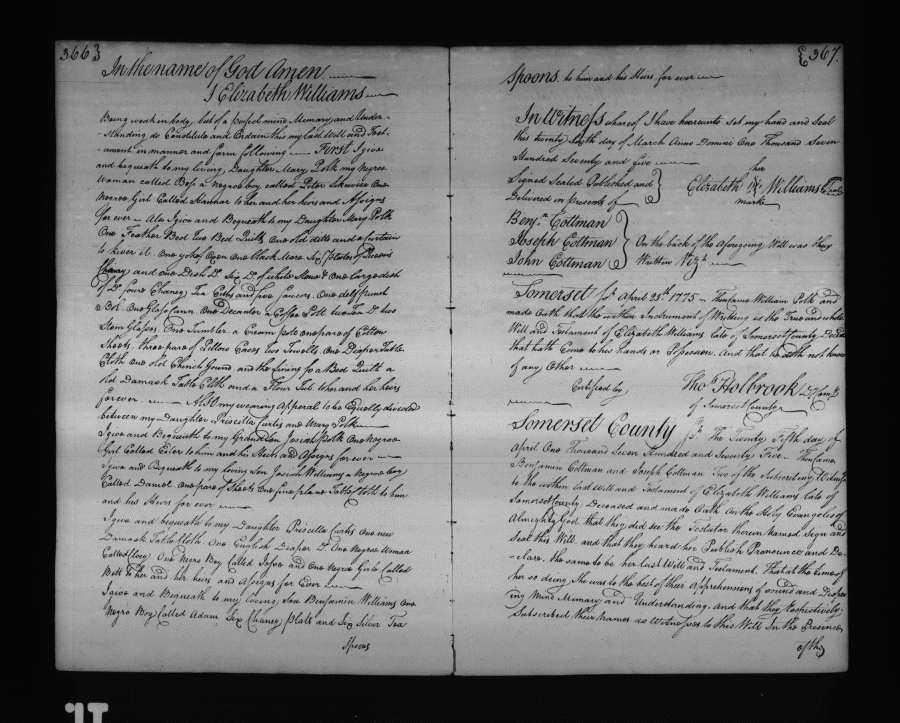 366}
In the name of God Amen
I Elizabeth Williams
Being weak in body, but of a perfect mind Memory, and Under-
-standing do Constitute and Ordain this my last Will and Test-
-ament in manner and form following First I give
and bequeath to my loving Daughter Mary Polk my Negroe
Woman called Bess a Negroe boy called Peter Likewise One
Negroe Girl Called Hannar to her and her heirs and Assigns
for ever Also I give and Bequeath to my Daughter Mary Polk
One Feather Bed two Bed Quilts One old ditto and a Curtain
to kiver it One Oven One Black Mare Six plates of Queens
Chaney and one Dish Do. Six Do. of white Stone & One large dish
of Do. four Chaney Tea Cups and five Saucers One delf punch
Bole One Glass Cann One Decanter a Coffee Pott two Do. two
Stem Glasses One Tumbler a Cream pott one pare of Cotton
Sheets three pare of Pillow Cases two Towells One Diaper Table
Cloth One old Chince Gound and the lining for a Bed Quilt a
old Damask Table Cloth and a Flour Tub to her and her heirs
forever Also my wearing Apperal to be Equally divided
between my Daughter Priscilla Curtis and Mary Polk
I give and Bequeath to my Grand Son Josiah Polk One Negroe
Girl Called Ester to him and his Heirs and Assigns for ever
I give and Bequeath to my loving Son Josiah Williams a Negroe boy
Called Daniel One pare of Sheets One fine plane Table Cloth to him
and his Heirs for ever
I give and bequeath to my Daughter Priscilla Curtis One new
Damask Table Cloth One English Diaper Do. One Negroe Woman
Called One Negro Boy Called and One Negroe Girle Called
Bett to her and her heirs and Assigns for Ever
I give and Bequeath to my loving Son Benjamin Williams One
Negro Boy Called Adam Six Chaney plats and Six Silver Tea
Spoons
{367.
Spoons to him and his Heirs for ever
In Witness whereof I have hereunto Set my hand and Seal
this twenty Sixth day of March Anno Domini One Thousand Seven
Hundred Seventy and five
her
Signed Sealed Published and
Delivered in Presents of } Elizabeth Williams Seal
mark
Benjn. Cottman
Joseph Cottman
John Cottman } On the back of the aforegoing Will was thus
Written Vizt.
Somerset Sst. April 25th. 1775 - Then Came William Polk and
made Oath that the within Instrument of Writting is the True and whole
Will and Testament of Elizabeth Williams late of Somerset County Deceased
that hath Come to his hands or Possession. And that he doth not know
of any Other
Certified by Tho. Holbrook
of Somerset County
Somerset County Sst. The Twenty Fifth day of
April One Thousand Seven Hundred and Seventy Five - Then Came
Benjamin Cottman and Joseph Cottman Two of the Subscribing Witnesses
to the within last Will and Testament of Elizabeth Williams late of
Somerset County Deceased and made Oath On the Holy Evangeles of
Almighty God that they did see the Testator therein Named Sign and
Seal this Will, and that they heard her Publish Pronounce and De-
-clare the same to be her last Will and Testament. That at the time of
her so doing She was to the best of their Apprehensions of sound and Dispos-
ing Mind Memory and Understanding And that they Respectively
Subscribed their names as Witnesses to this Will In the Presence
of the